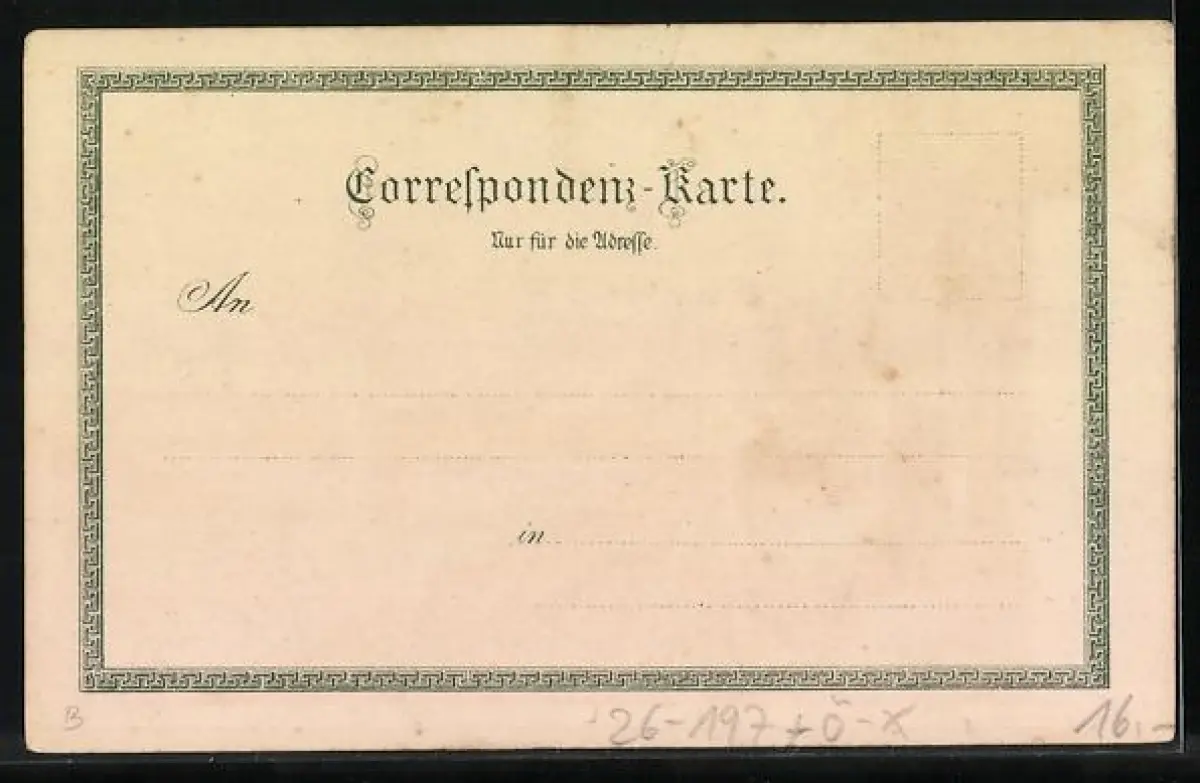 Correſpondenz-Karte.
Nur für die Adreſſe.
An
in
B
26-197 + Ö-X
16.-